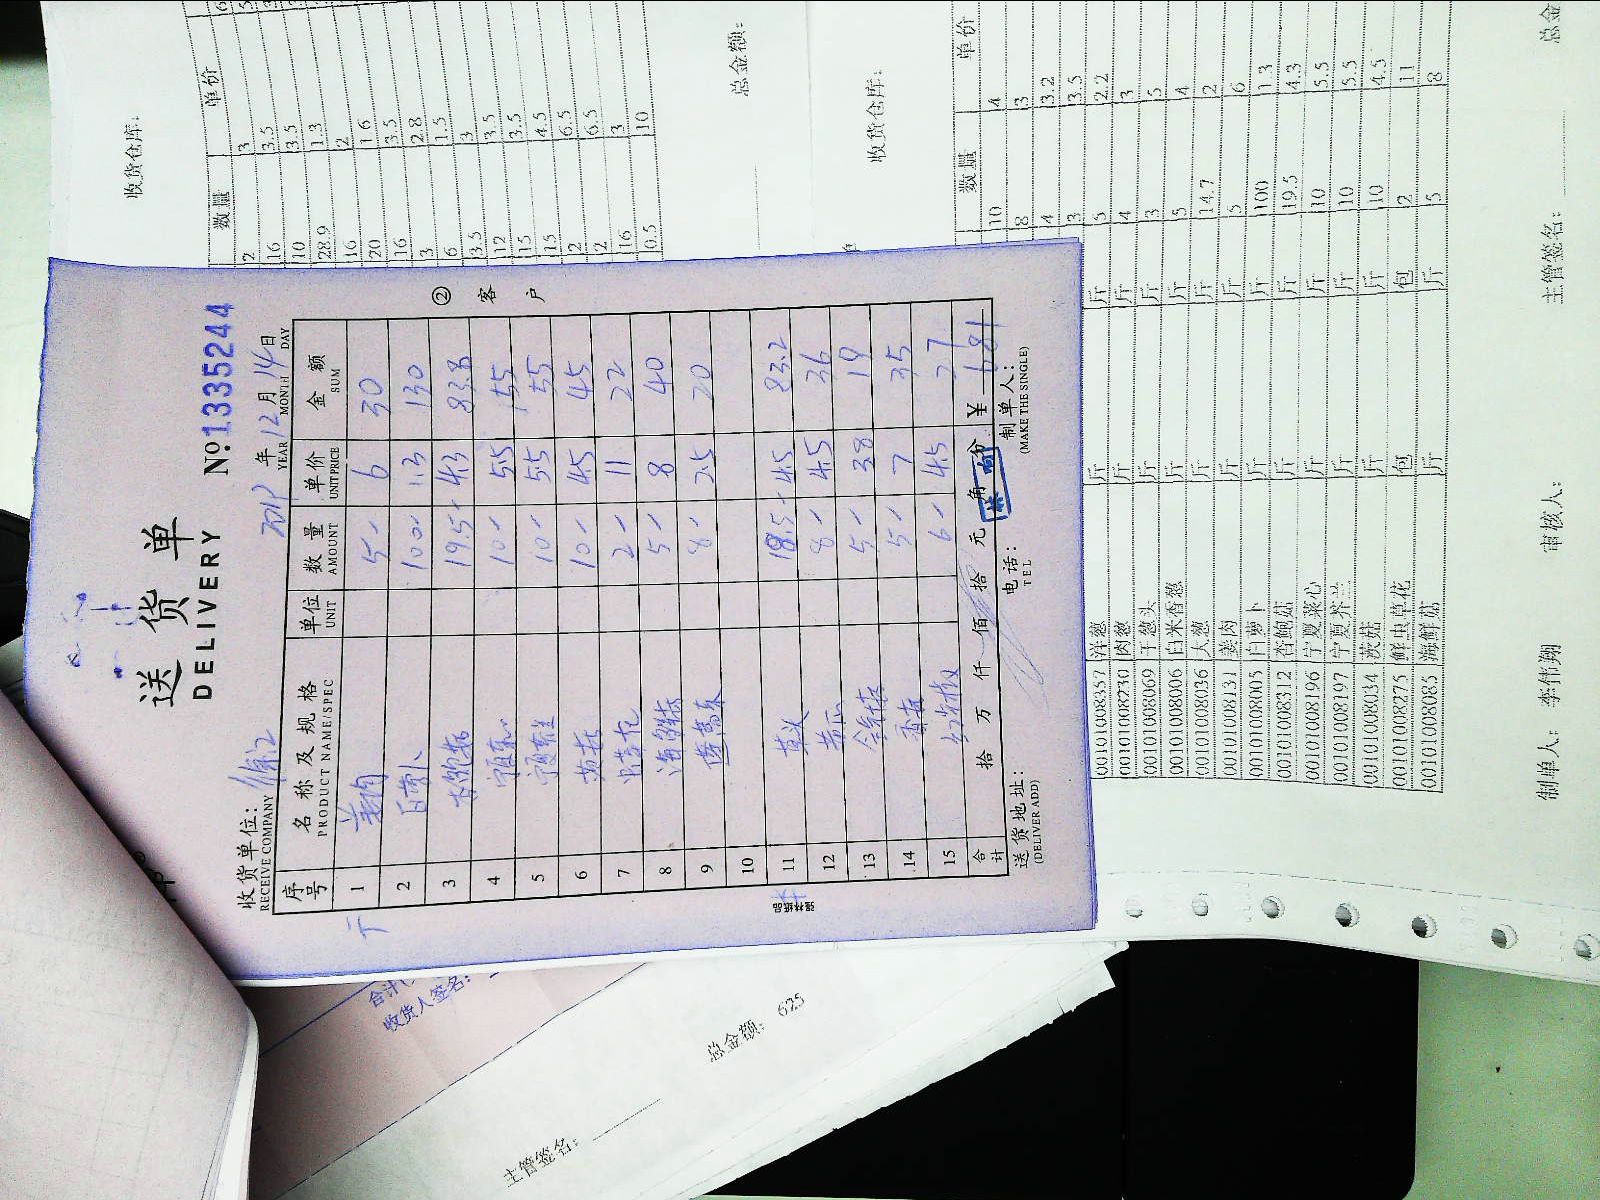 送货单
DELIVERY
No.1335244
收货单位:
RECEIVE COMPANY
2019 年 12 月 14 日
YEAR MONTH DAY
序号 名称及规格 单位 数量 单价 金额
PRODUCT NAME/SPEC UNIT AMOUNT UNIT PRICE SUM
1 姜肉 5 6 30
2 白萝卜 100 1.3 130
3 19.5 4.3 83.8
4 宁夏菜心 10 5.5 55
5 10 5.5 55
6 茨菇 10 4.5 45
7 虫草花 2 11 22
8 海鲜菇 5 8 40
9 8 2.5 20
10
11 18.5 4.5 83.2
12 8 4.5 36
13 5 3.8 19
14 香菇 5 7 35
15 6 4.5 27
合计 拾 万 仟 佰 拾 元 角 分 ¥ 681
送货地址: 电话: 制单人:
(DELIVER ADD) TEL (MAKE THE SINGLE)
② 客户
强林纸品
收货仓库:
数量 单价
2 3
16 3.5
10 3.5
28.9 1.3
16 2
20 1.6
16 3.5
3 2.8
6 1.5
3.5 3
12 3.5
15 3.5
15 4.5
2 6.5
2 6.5
16 3
10.5 10
总金额:
收货仓库:
数量 单价
10 4
8 3
4 3.2
3 3.5
00101008357 洋葱 斤 5 2.2
00101008230 肉葱 斤 4 3
00101008069 干葱头 斤 3 5
00101008006 白米香葱 斤 5 4
00101008036 大葱 斤 14.7 2
00101008131 姜肉 斤 5 6
00101008005 白萝卜 斤 100 1.3
00101008312 杏鲍菇 斤 19.5 4.3
00101008196 宁夏菜心 斤 10 5.5
00101008197 宁夏芥兰 斤 10 5.5
00101008034 茨菇 斤 10 4.5
00101008275 鲜虫草花 包 包 2 11
00101008085 海鲜菇 斤 斤 5 8
制单人: 李伟翔 审核人: 主管签名: 总金
合计(
收货人签名:
总金额: 625
主管签名: